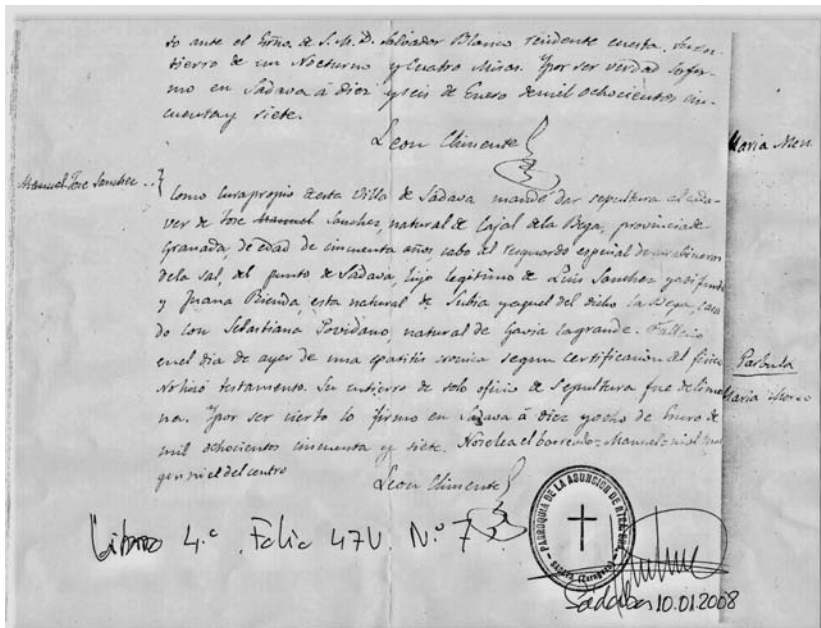 to ante el Essno. de S. M. D. Salvador Blanco residente en esta. Su en-
tierro de un Nocturno y Cuatro Misas. Y por ser verdad lo fir-
mo en Sadava á diez y seis de Enero de mil ochocientos cin-
cuenta y siete.
Leon Climente
Maria Men
Manuel Jose Sanchez ..
Como Cura propio de esta Villa de Sadava mandé dar sepultura al cada-
ver de Jose Manuel Sanchez, natural de Cajal de la Bega, provincia de
Granada, de edad de cincuenta años, cabo del resguardo especial de carabineros
de la sal, del punto de Sadava, hijo legitimo de Luis Sanchez ya difunto
y Juana Rienda, esta natural de Subia y aquel del dicho la Bega, casa
do con Sebastiana Povidano, natural de Gavia la grande. Fallecio
en el dia de ayer de una epatitis cronica segun certificacion del fisico
No hizo testamento. Su entierro de solo oficio de Sepultura fue de limos
na. Y por ser cierto lo firmo en Sadava á diez y ocho de Enero de
mil ochocientos cincuenta y siete. No se lea el borreado = Manuel = ni al mar
gen ni el del centro
Parbula
Maria
Leon Climente
Libro 4.º Folio 47V. N.º 7
PARROQUIA DE LA ASUNCION DE NTRA. SRA.
SADABA (Zaragoza)
Sádaba, 10.01.2008